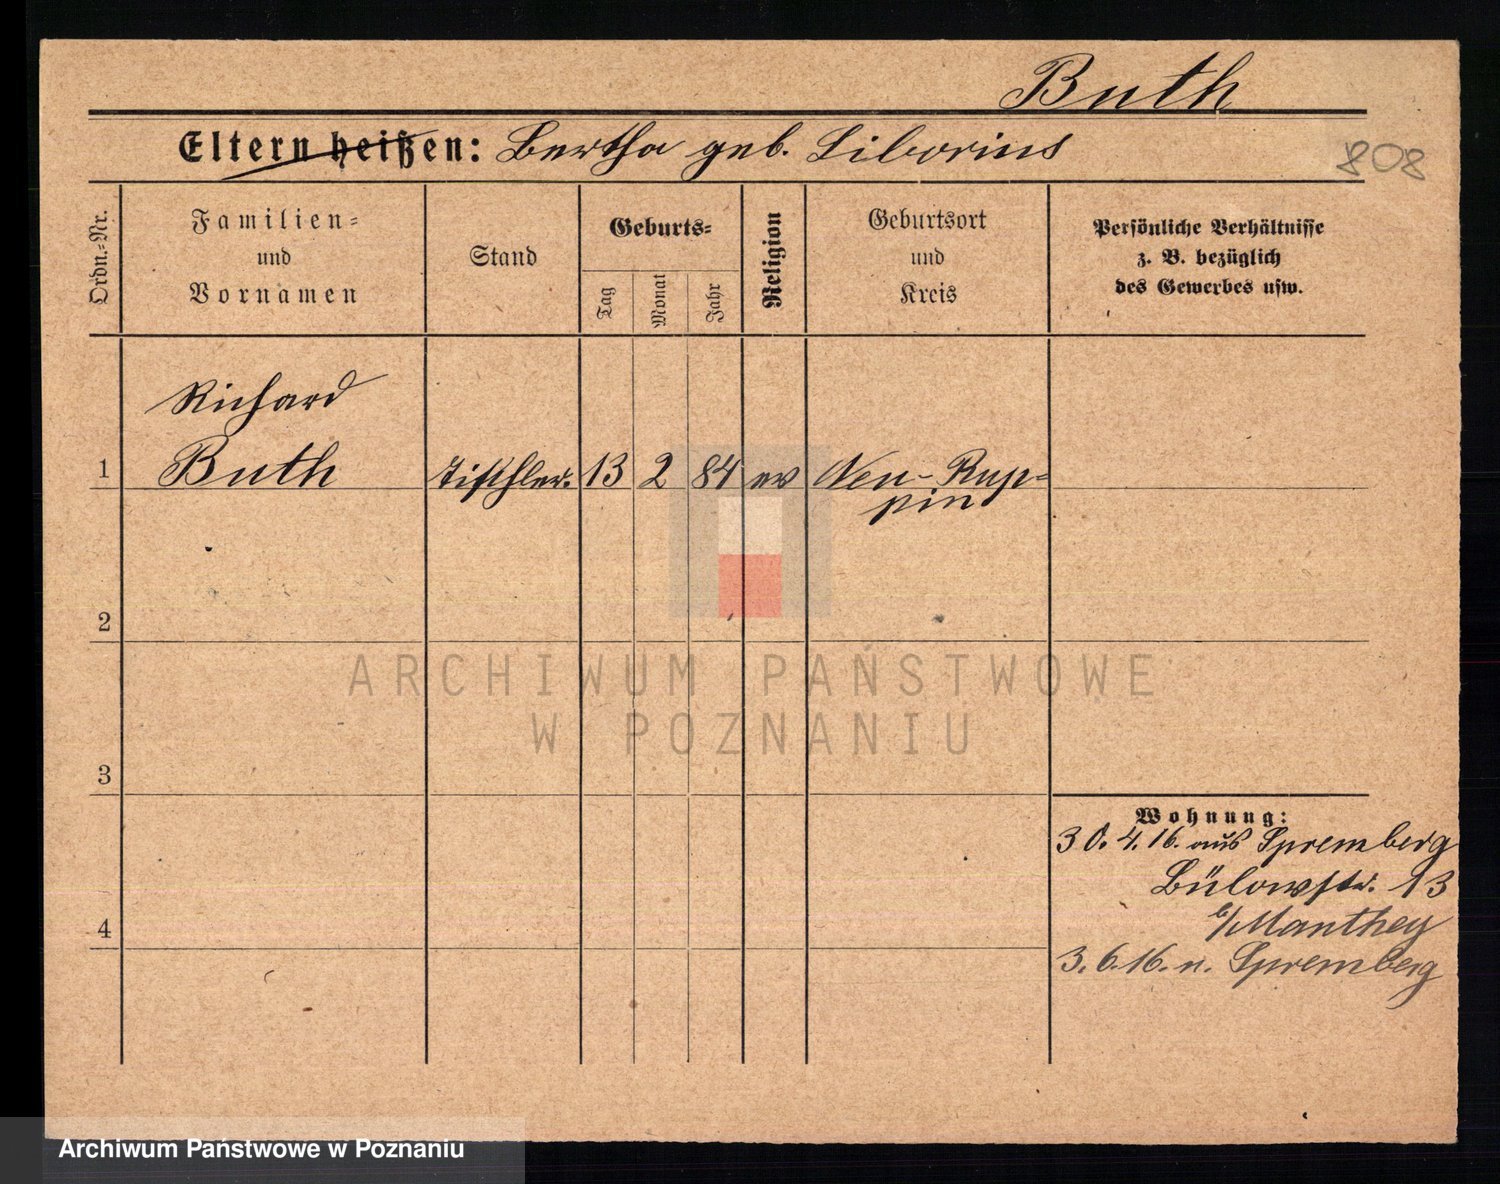 Buth
Eltern heißen: Bertha geb. Liborius
808
Ordn.=Nr.
Familien=
und
Vornamen
Stand
Geburts=
Tag
Monat
Jahr
Religion
Geburtsort
und
Kreis
Persönliche Verhältnisse
z. B. bezüglich
des Gewerbes usw.
Richard
1 Buth Tischler. 13 2 84 ev Neu-Rup=
pin
2
ARCHIWUM PAŃSTWOWE
W POZNANIU
3
Wohnung:
30. 4. 16. aus Spremberg
Bülowstr. 13
b/Manthey
4
3. 6. 16. n. Spremberg
Archiwum Państwowe w Poznaniu